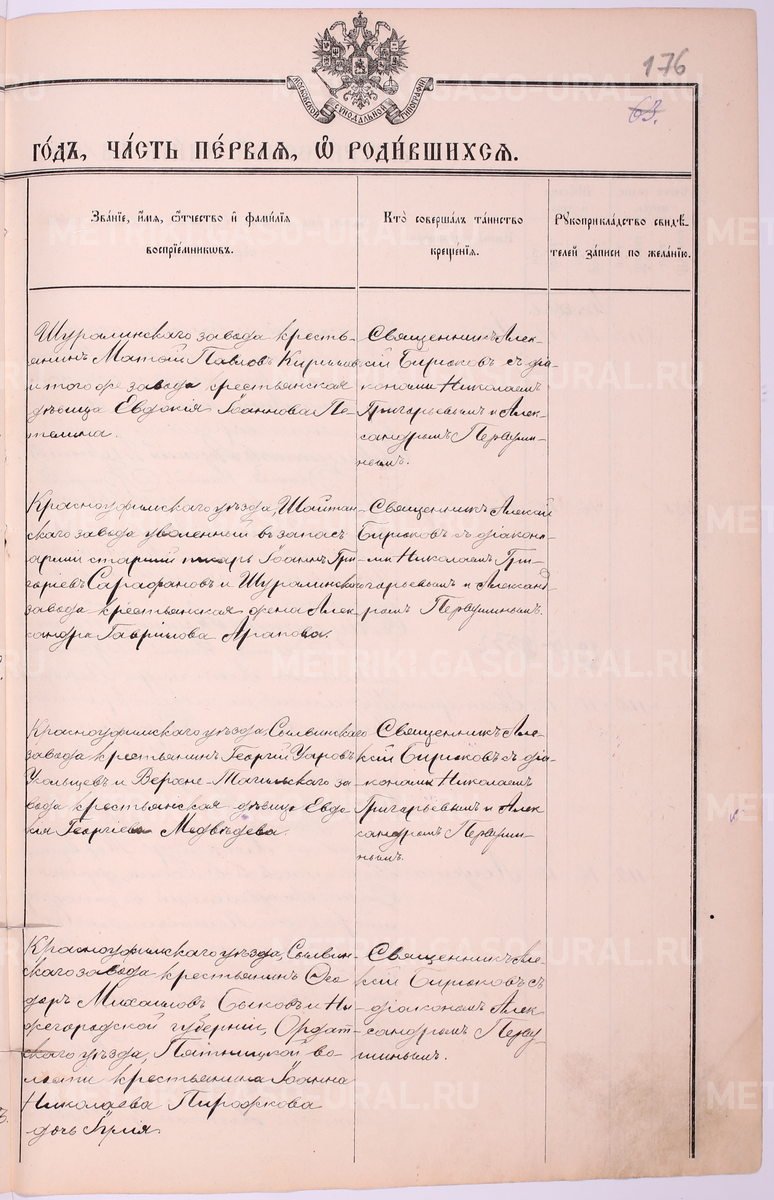 176
63.
МОСКОВСКОЙ СѴНОДАЛЬНОЙ ТИПОГРАФІИ
го́дъ, ча́сть пе́рваѧ, ѡ҆ роди́вшихсѧ.
Зва́нїе, и҆́мѧ, ѻ҆́тчество и҆ фами́лїѧ
воспрїе́мникѡвъ.
Кто̀ соверша́лъ та́инство
креще́нїѧ.
Рꙋкоприкла́дство свидѣ́-
телей за́писи по жела́нїю.
Шуралинскаго завода кресть-
янинъ Матѳій Павловъ
и того же завода, крестьянская
дѣвица Евдокія Іоаннова Пе-
телина.
Священникъ Алек-
сій Бирюковъ съ діа-
конами Николаемъ
Григорьевымъ и Алек-
сандромъ Первуши-
нымъ.
Красноуфимскаго уѣзда, Шайтан-
скаго завода уволенный въ запасъ
арміи старшій писарь Іоаннъ Гри-
горіевъ Сарафановъ и Шуралинскаго
завода крестьянская жена Алек-
сандра Гаврилова Арапова.
Священникъ Алексій
Бирюковъ съ діакона-
ми Николаемъ Гри-
горьевымъ и Александ-
ромъ Первушинымъ.
Красноуфимскаго уѣзда, Сылвинскаго
завода крестьянинъ Георгій
и Верхне-Тагильскаго за-
вода крестьянская дѣвица Евдо-
кія Георгіева Медвѣдева.
Священникъ Але-
ксій Бирюковъ съ діа-
конами Николаемъ
Григорьевымъ и Алек-
сандромъ Первуши-
нымъ.
Красноуфимскаго уѣзда, Сылвин-
скаго завода крестьянинъ Ѳео-
доръ Михаиловъ Быковъ и Ни-
жегородской губерніи, Ардат-
скаго уѣзда, Пятницкой во-
лости крестьянина Іоанна
Николаева Пирожкова
дочь Юлія.
Священникъ Але-
ксій Бирюковъ съ
діакономъ Алек-
сандромъ Перву-
шинымъ.
METRIKI.GASO-URAL.RU